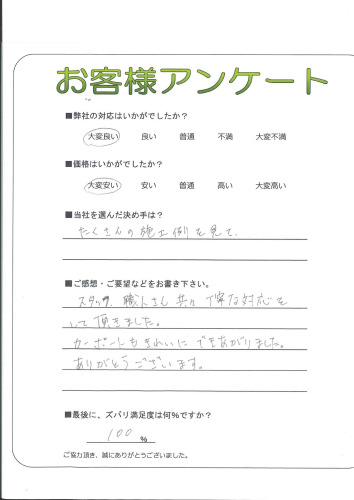 お客様アンケート
■弊社の対応はいかがでしたか?
大変良い 良い 普通 不満 大変不満
■価格はいかがでしたか?
大変安い 安い 普通 高い 大変高い
■当社を選んだ決め手は?
たくさんの施工例を見て、
■ご感想・ご要望などをお書き下さい。
スタッフ、職人さん共々丁寧な対応を
して頂きました。
カーポートもきれいにできあがりました。
ありがとうございます。
■最後に、ズバリ満足度は何%ですか?
100 %
ご協力頂き、誠にありがとうございました。